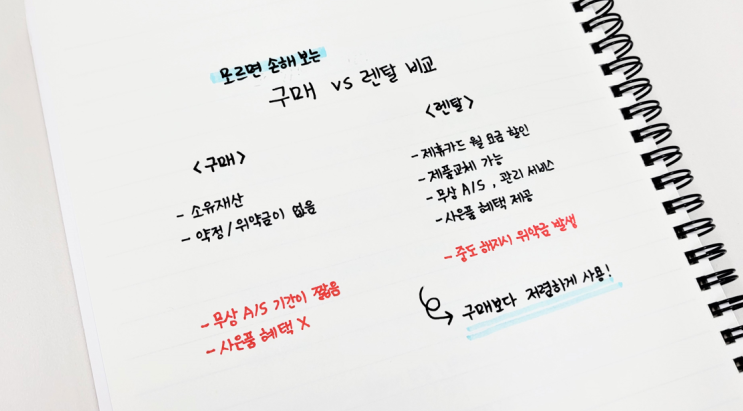 모르면 손해 보는
구매 vs 렌탈 비교
<구매>
- 소유재산
- 약정/위약금이 없음
- 무상 A/S 기간이 짧음
- 사은품 혜택 X
<렌탈>
- 제휴카드 월 요금 할인
- 제품교체 가능
- 무상 A/S, 관리 서비스
- 사은품 혜택 제공
- 중도 해지시 위약금 발생
구매보다 저렴하게 사용!